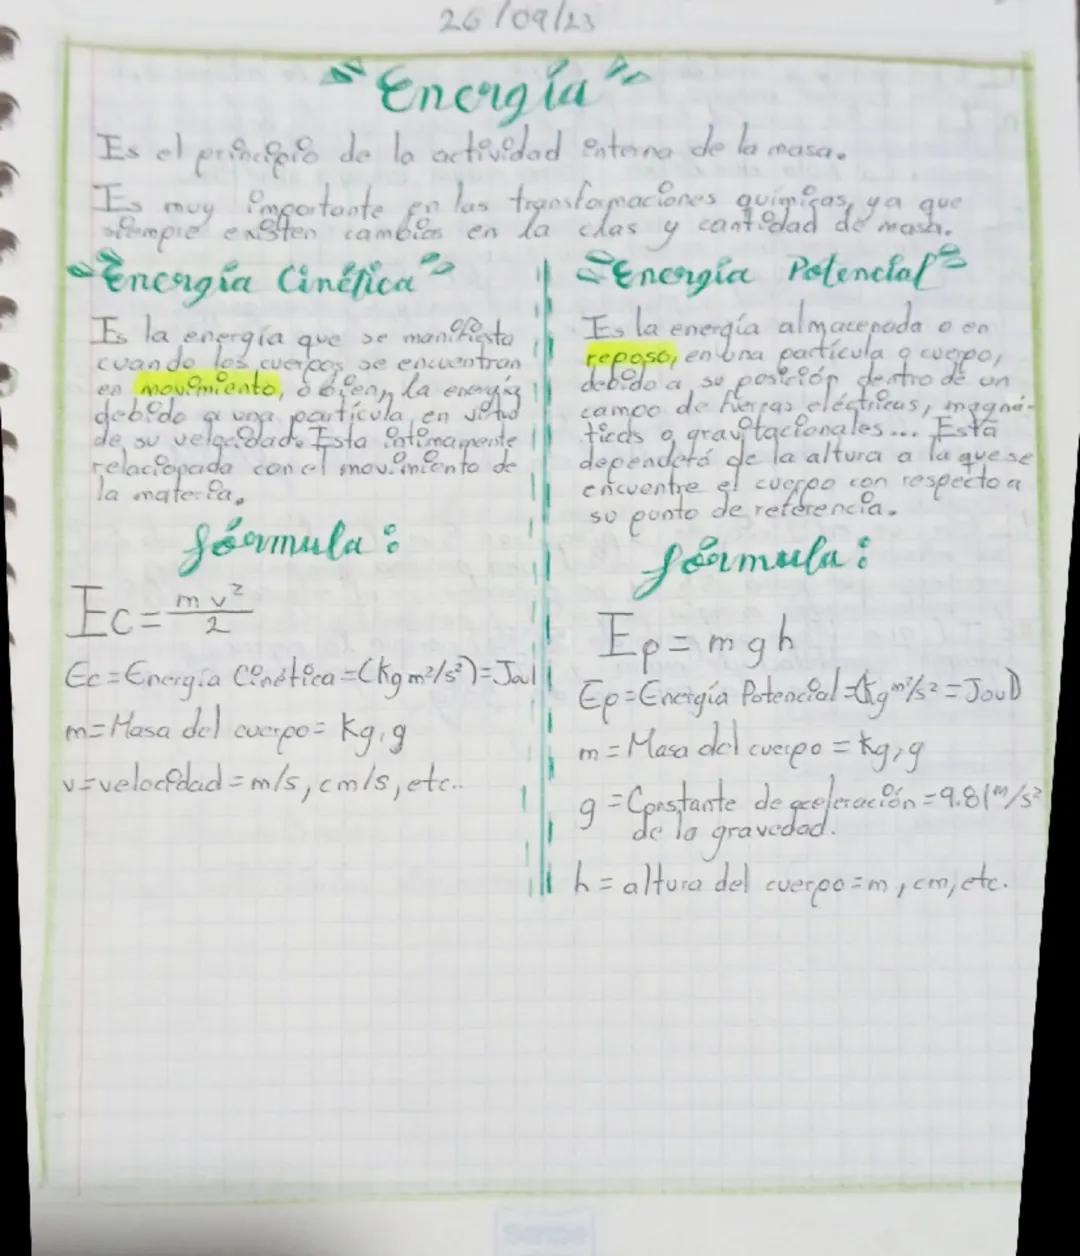 26/09/23
"Energía"
Es el principio de la actividad interna de la masa.
Es muy importante en las transformaciones químicas, ya que
siempre existen cambios en la clas y cantidad de masa.
"Energía Cinética"
Es la energía que se manifiesta
cuando los cuerpos se encuentran
en movimiento, o bien, la energía
debido a una partícula en virtud
de su velocidad. Esta íntimamente
relacionada con el movimiento de
la materia.
fórmula:
Ec = m v² / 2
Ec = Energía Cinética = (Kg m²/s²) = Joul
m = Masa del cuerpo = Kg, g
v = velocidad = m/s, cm/s, etc..
"Energía Potencial"
Es la energía almacenada o en
reposo, en una partícula o cuerpo,
debido a su posición dentro de un
campo de fuerzas eléctricas, magné-
ticas o gravitacionales... Esta
dependerá de la altura a la que se
encuentre el cuerpo con respecto a
su punto de referencia.
fórmula:
Ep = m g h
Ep = Energía Potencial = (Kg m²/s² = Joul)
m = Masa del cuerpo = Kg, g
g = Constante de aceleración = 9.81 m/s²
de la gravedad.
h = altura del cuerpo = m, cm, etc.